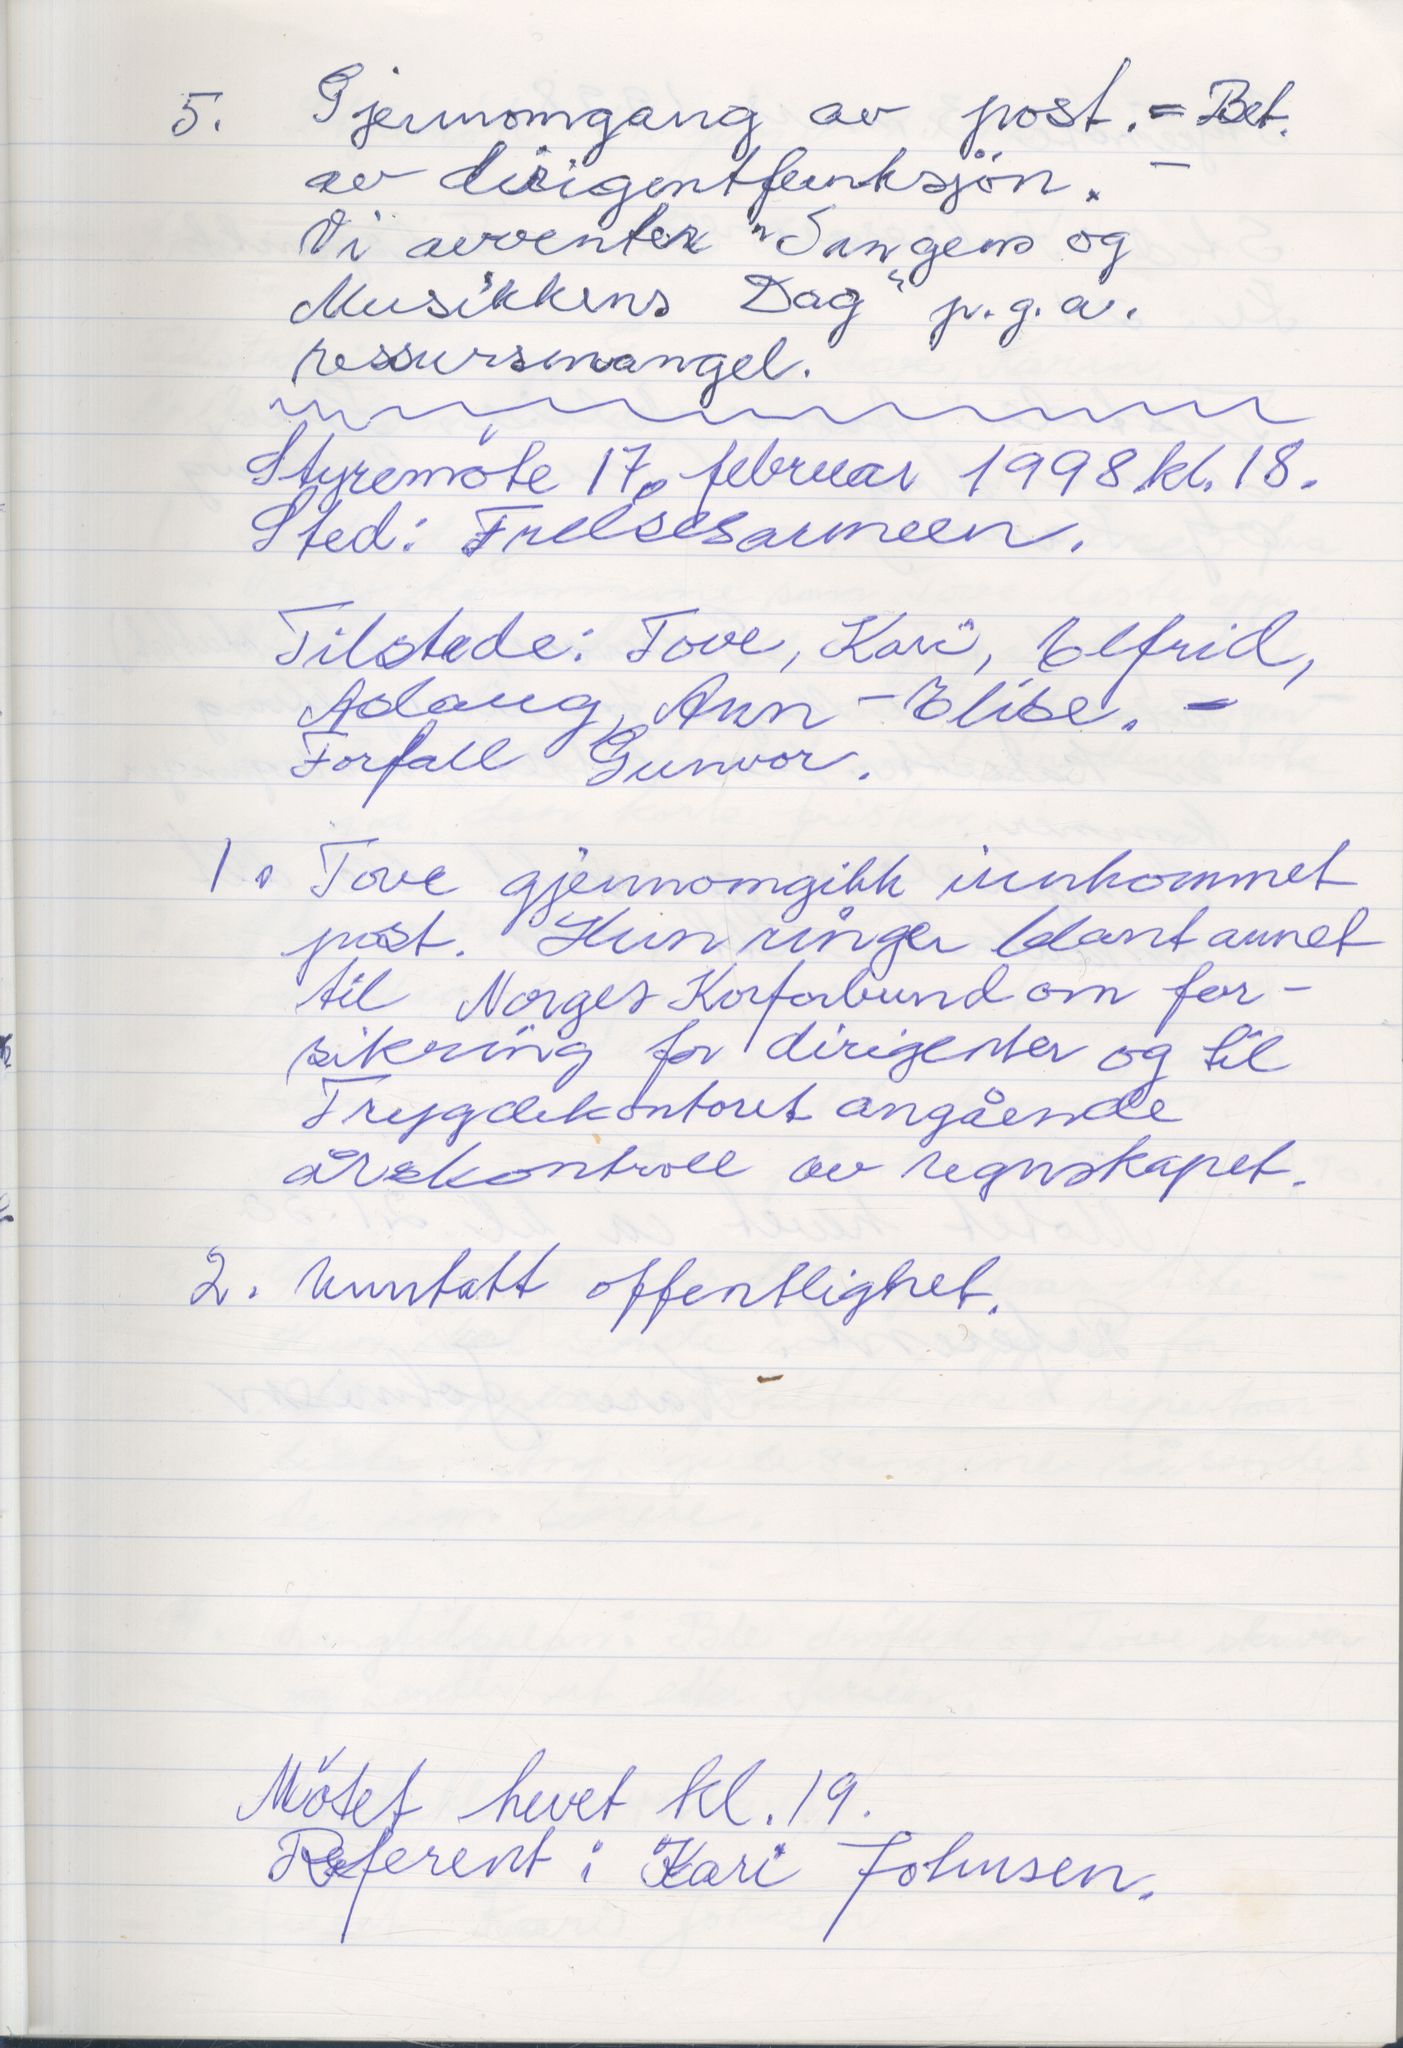 5. Gjennomgang av post. = Bet.
av dirigentfunksjön. -
Vi avventer "Sangens og
Musikkens Dag" p.g.a.
ressursmangel.
Styremöte 17. februar 1998 kl. 18.
Sted: Frelsesarmeen.
Tilstede: Tove, Kari, Elfrid,
Aslaug, Ann-Elise. -
Forfall Gunvor.
1. Tove gjennomgikk innkommet
post. Hun ringer blant annet
til Norges Korforbund om for-
sikring for dirigenter og til
Trygdekontoret angående
årskontroll av regnskapet.
2. Unntatt offentlighet.
Mötet hevet kl. 19.
Referent: Kari Johnsen.